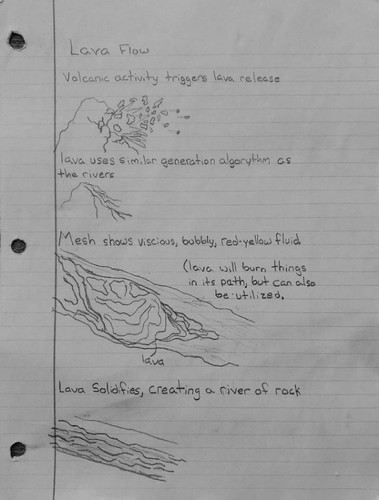 Lava Flow
Volcanic activity triggers lava release
lava uses similar generation algorythm as
the rivers
Mesh shows viscious, bubbly, red-yellow fluid
(lava will burn things
in its path, but can also
be utilized.
lava
Lava Solidifies, creating a river of rock